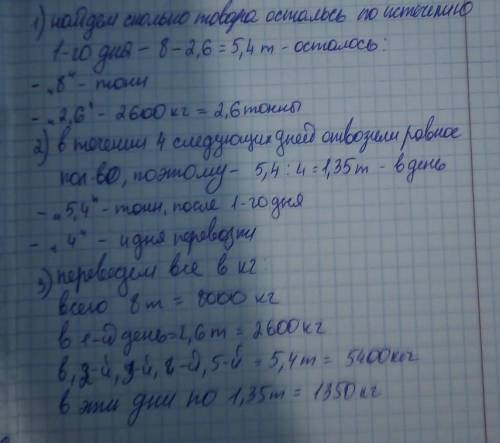 1) найдем сколько товара осталось по истечению
1-го дня - 8 - 2,6 = 5,4 т - осталось:
- „8" - тонн
- „2,6" - 2600 кг = 2,6 тонны
2) в течении 4 следующих дней отвозили равное
кол-во, поэтому - 5,4 : 4 = 1,35 т - в день
- „5,4" - тонн, после 1-го дня
- „4" - 4 дня перевозки
3) переведем все в кг:
всего 8 т = 8000 кг
в 1-й день = 2,6 т = 2600 кг
в, 2-й, 3-й, 4-й, 5-й - 5,4 т = 5400 кг
в эти дни по 1,35 т = 1350 кг